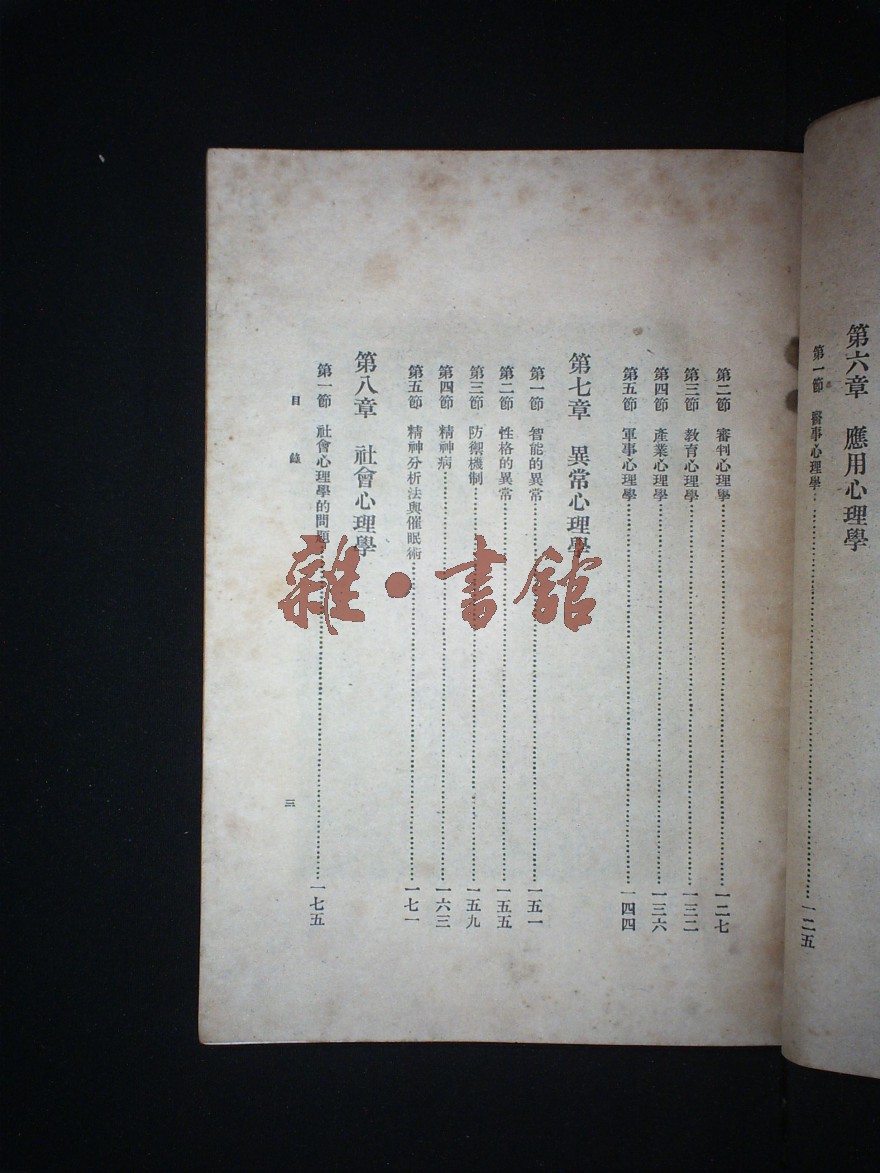 第六章　應用心理學
第一節　醫事心理學………一二五
第二節　審判心理學………一二七
第三節　教育心理學………一三二
第四節　產業心理學………一三六
第五節　軍事心理學………一四四
第七章　異常心理學
第一節　智能的異常………一五一
第二節　性格的異常………一五五
第三節　防禦機制………一五九
第四節　精神病………一六三
第五節　精神分析法與催眠術………一七一
第八章　社會心理學
第一節　社會心理學的問題………一七五
目錄
三
雜·書館